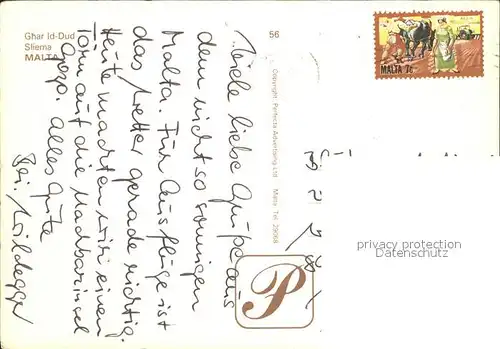 Ghar Id-Dud
Sliema
MALTA
56
Viele liebe Grüße aus
dem nicht so sonnigen
Malta. Für Ausflüge ist
das Wetter gerade richtig.
Heute machten wir einen
Törn auf die Nachbarinsel
Gozo. Alles Gute
Copyright Perfecta Advertising Ltd Malta Tel 29068
P
MALTA 7c
privacy protection
Datenschutz